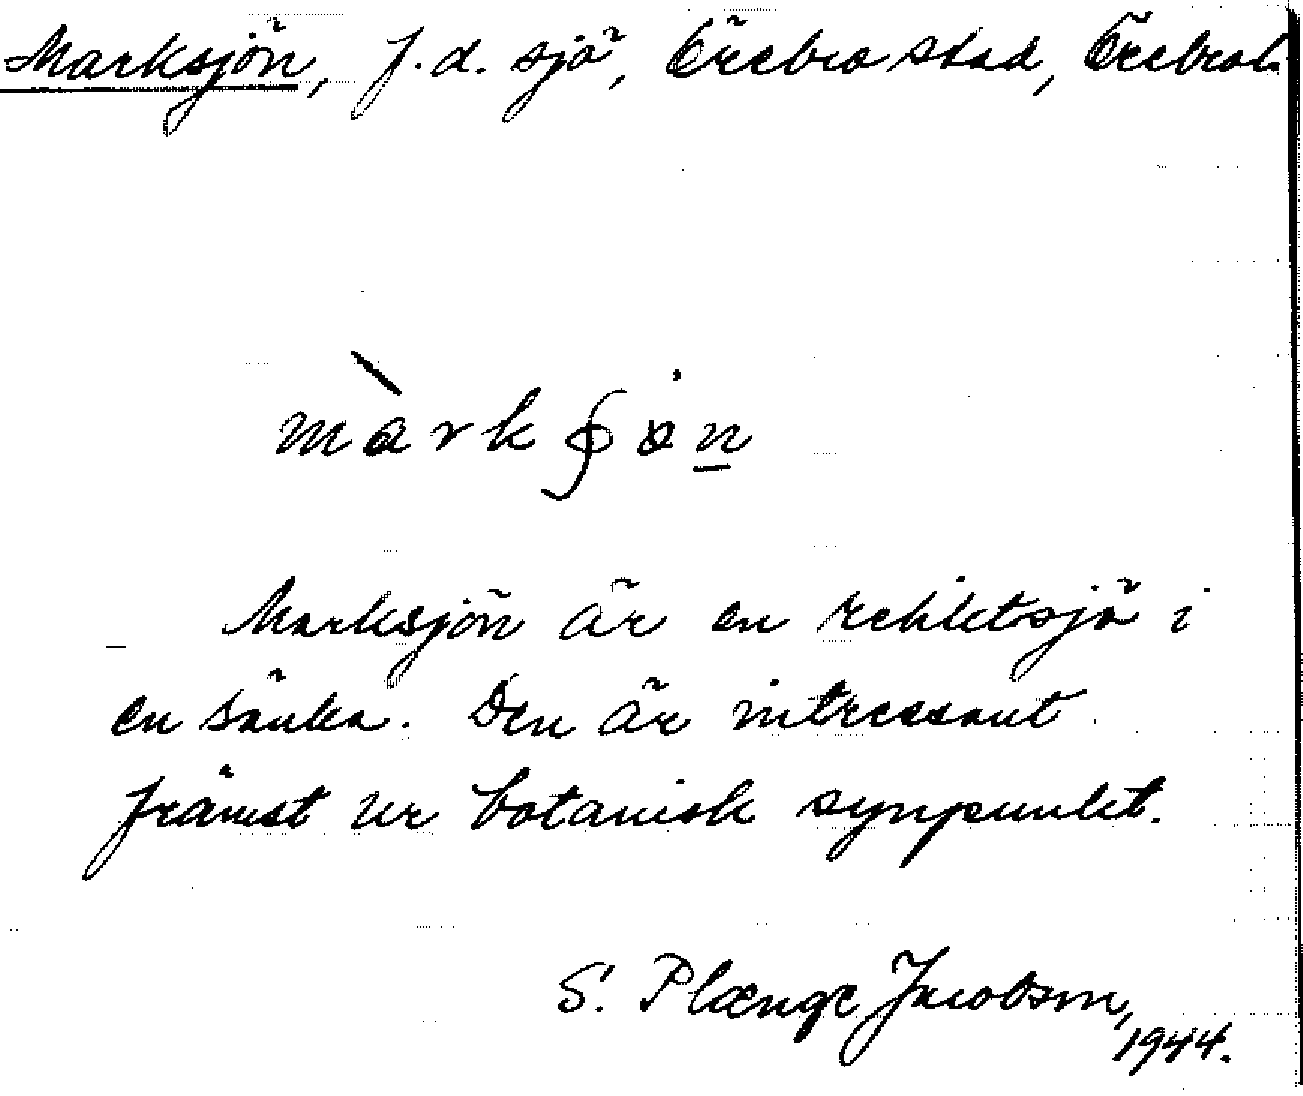 Marksjön, f.d. sjö, Örebro stad, Örebro l.
Marksjön är en reliktsjö i
en sänka. Den är intressant
främst ur botanisk synpunkt.
S. Plænge Jacobson,
1944.